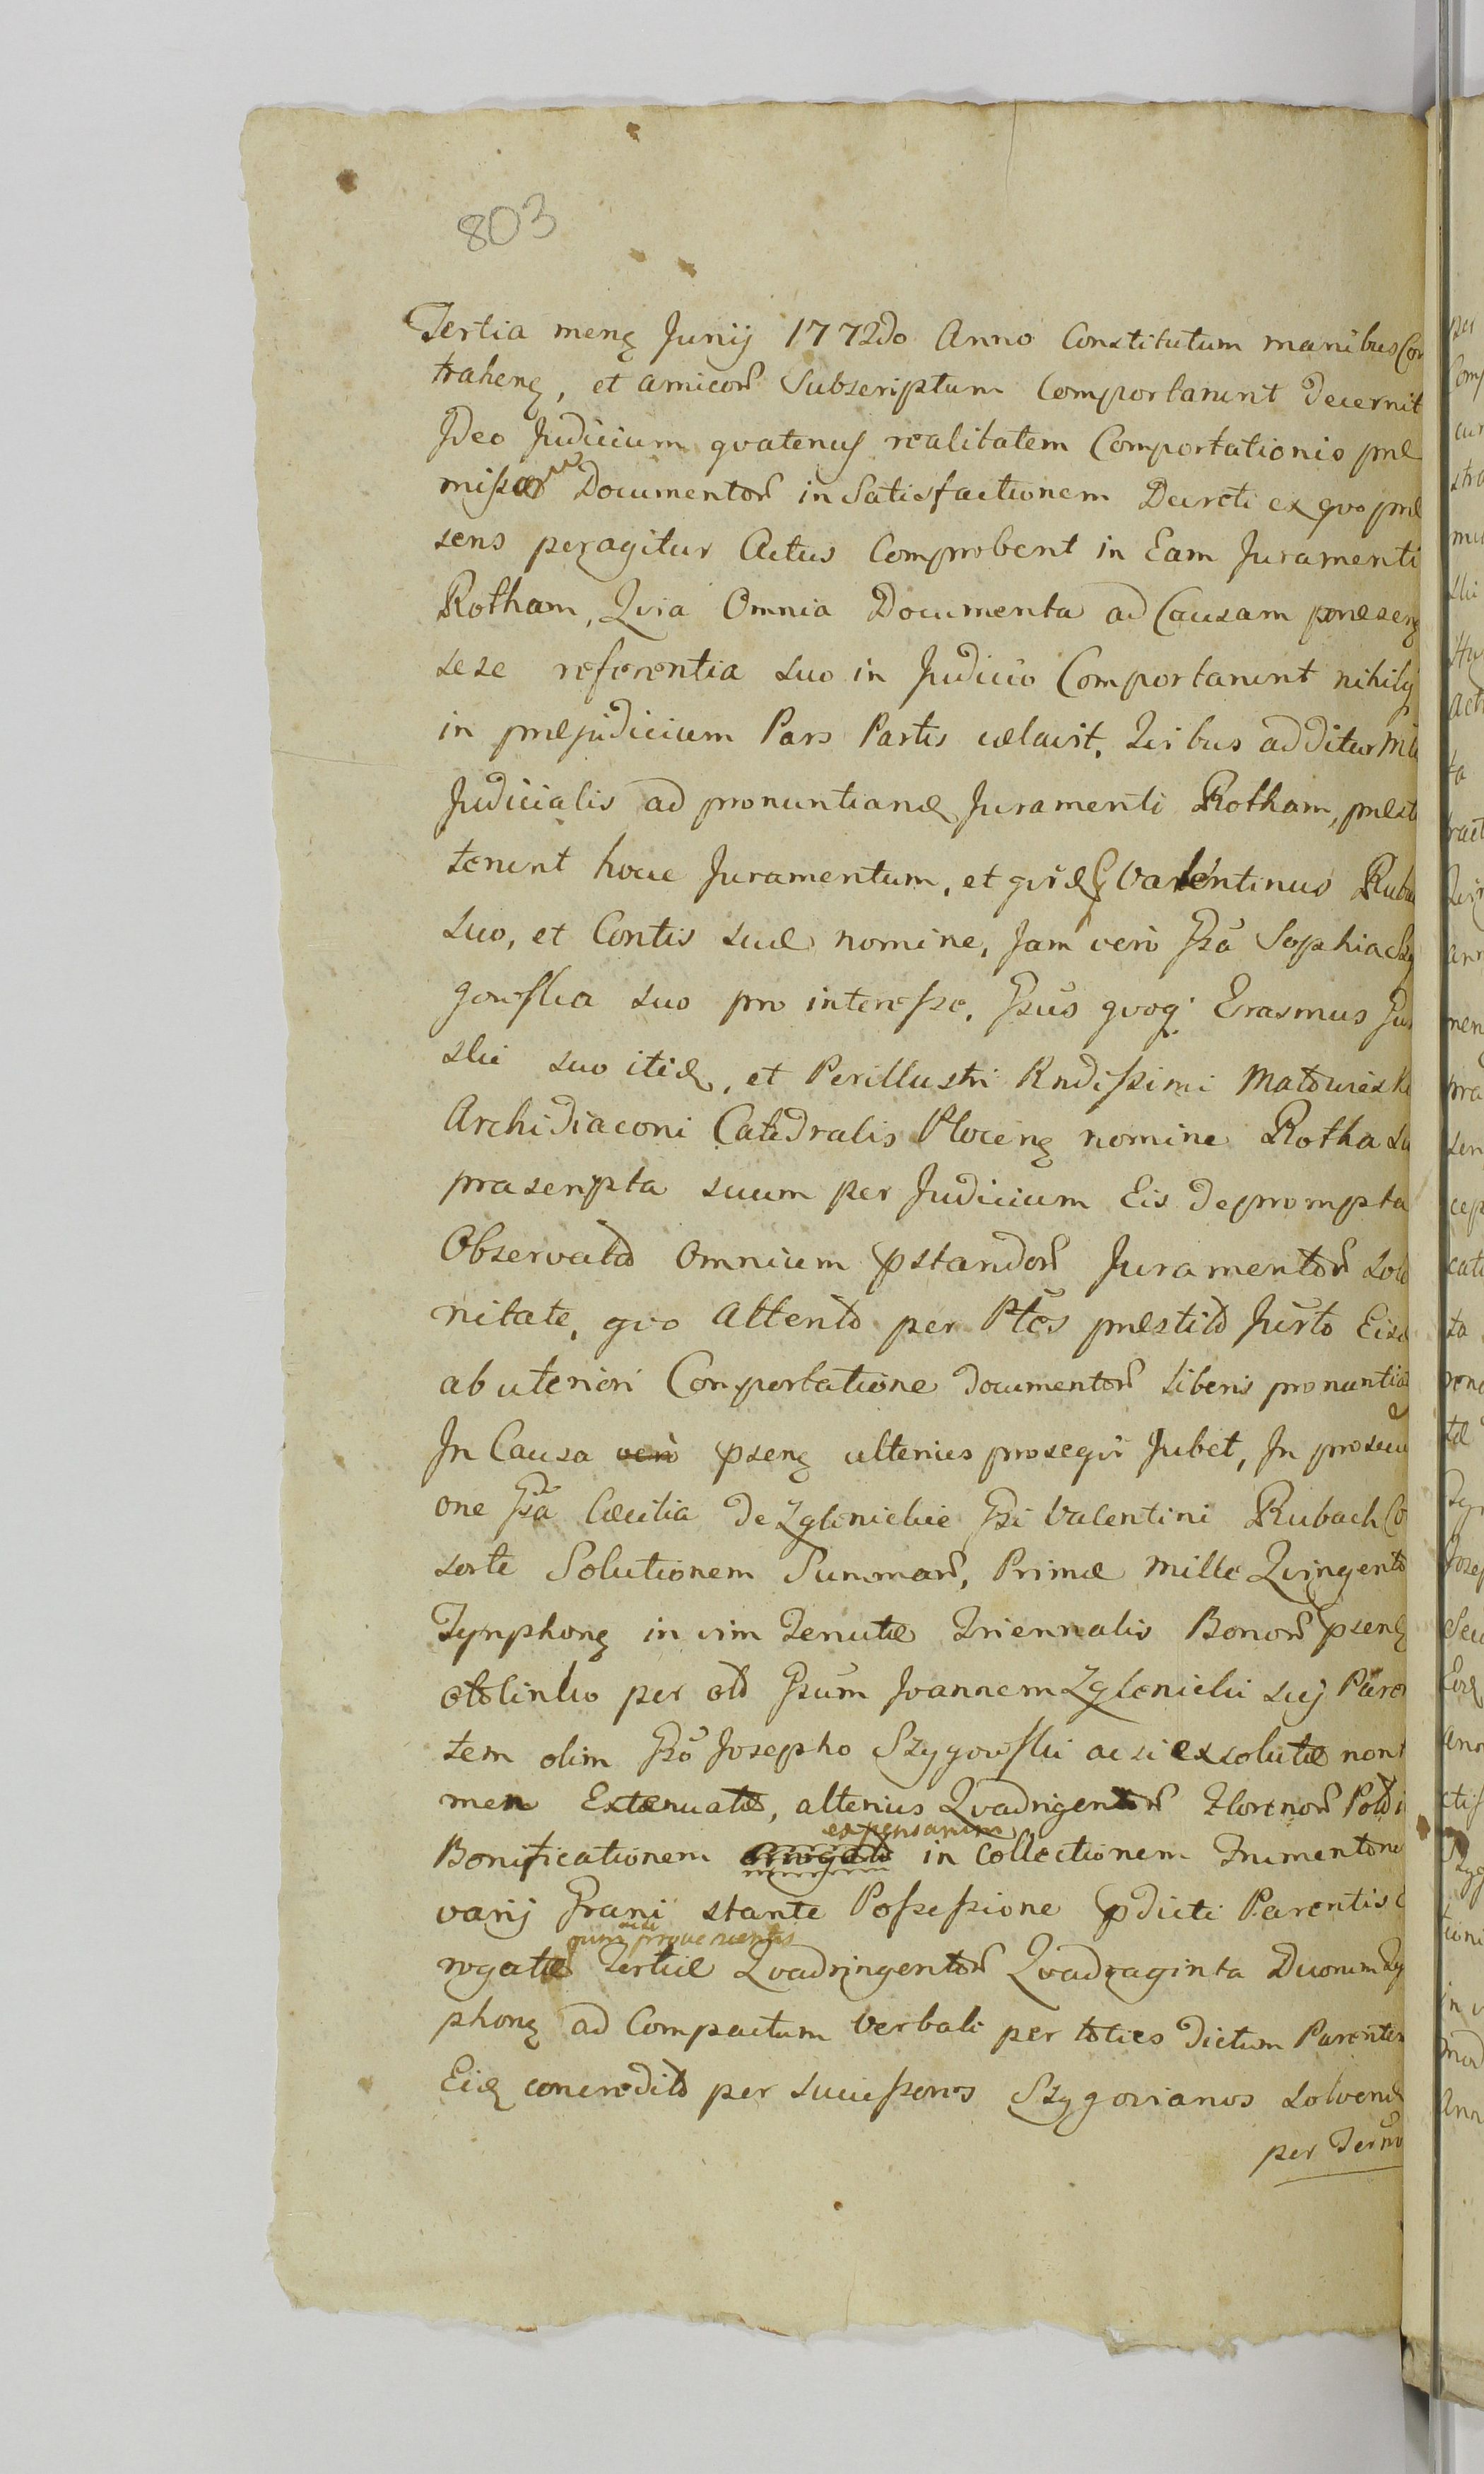 803
Tertia menẽ Junij 1772do Anno Constitutum manibus Con
trahenẽ, et amicorũ Subscriptum Comportarunt decernit
Jdeo Judicium qvatenus realitatem Comportationis præ
missorũ Documentorũ in Satisfactionem Decreti ex qvo præ
sens peragitur Actus Comprobent in Eam Juramenti
Rotham, Qvia Omnia Documenta ad Causam præsenẽ
sese referentia suo in Judicio Comportarunt nihilẽ
in præjudicium Pars Partis celavit. Qvibus additur Mi
Judicialis ad pronuntianđ Juramenti Rotham, præsti
terunt hocce Juramentum, et qvidẽ Valentinus Ruba
suo, et Contis suæ nomine, Jam vero Gsã Sophia Szy
gowska suo pro interesse, Gsus qvoq; Erasmus Gur
ski suo itiđ, et Perillustri Rndissimi Mathowiesk
Archidiaconi Catedralis Plocenẽ nomine Rotha su
prascripta suum per Judicium Eis deprompta
Observato Omnium pstandorũ Juramentorũ Sole
nitate, qvo attento per Ptes præstito Jurto Eisd
ab uteriori Comportatione documentorũ liberis pronuntiat
Jn Causa vero psenẽ ulterius proseqvi Jubet, Jn prosecu
one Gsã Cæcilia de Zglenickie Gsi Valentini Rubach Co
sorte Solutionem Summarũ, Primæ Mille Qvingento
Tynphonẽ in vim Tenutæ Triennalis Bonorũ psenẽ
otolinko per old Gsum Joannem Zglenicki suj Paren
tem olim Gsõ Josepho Szygowski ac si exsolutæ non t
men Extenuatæ, alterius Qvadrigentorũ Florenorũ Pold i
Bonificationem erogato expensarum in Collectionem Frumentoru
varij Grani stante Possessione pdicti Parentis e
rogatæ provenientis Tertiæ Qvadringentorũ Qvadraginta Duorum Ty
phonẽ ad Compactum Verbale per toties dictum Parentem
Eiđ concredito per Successores Szygovianos solvenđ
per Termo